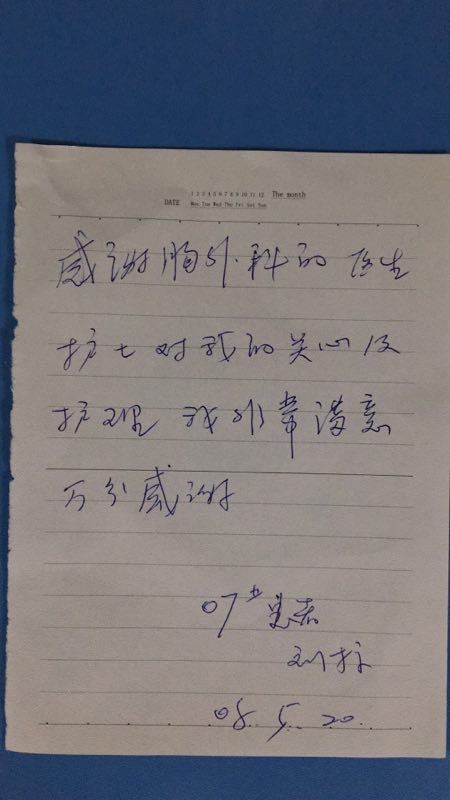 1 2 3 4 5 6 7 8 9 10 11 12 The month
DATE Mon Tue Wed Thu Fri Sat Sun
感谢胸外科的 医生
护士对我的关心及
护理 我非常满意
万分感谢
07# 患者
刘
08. 5. 20.